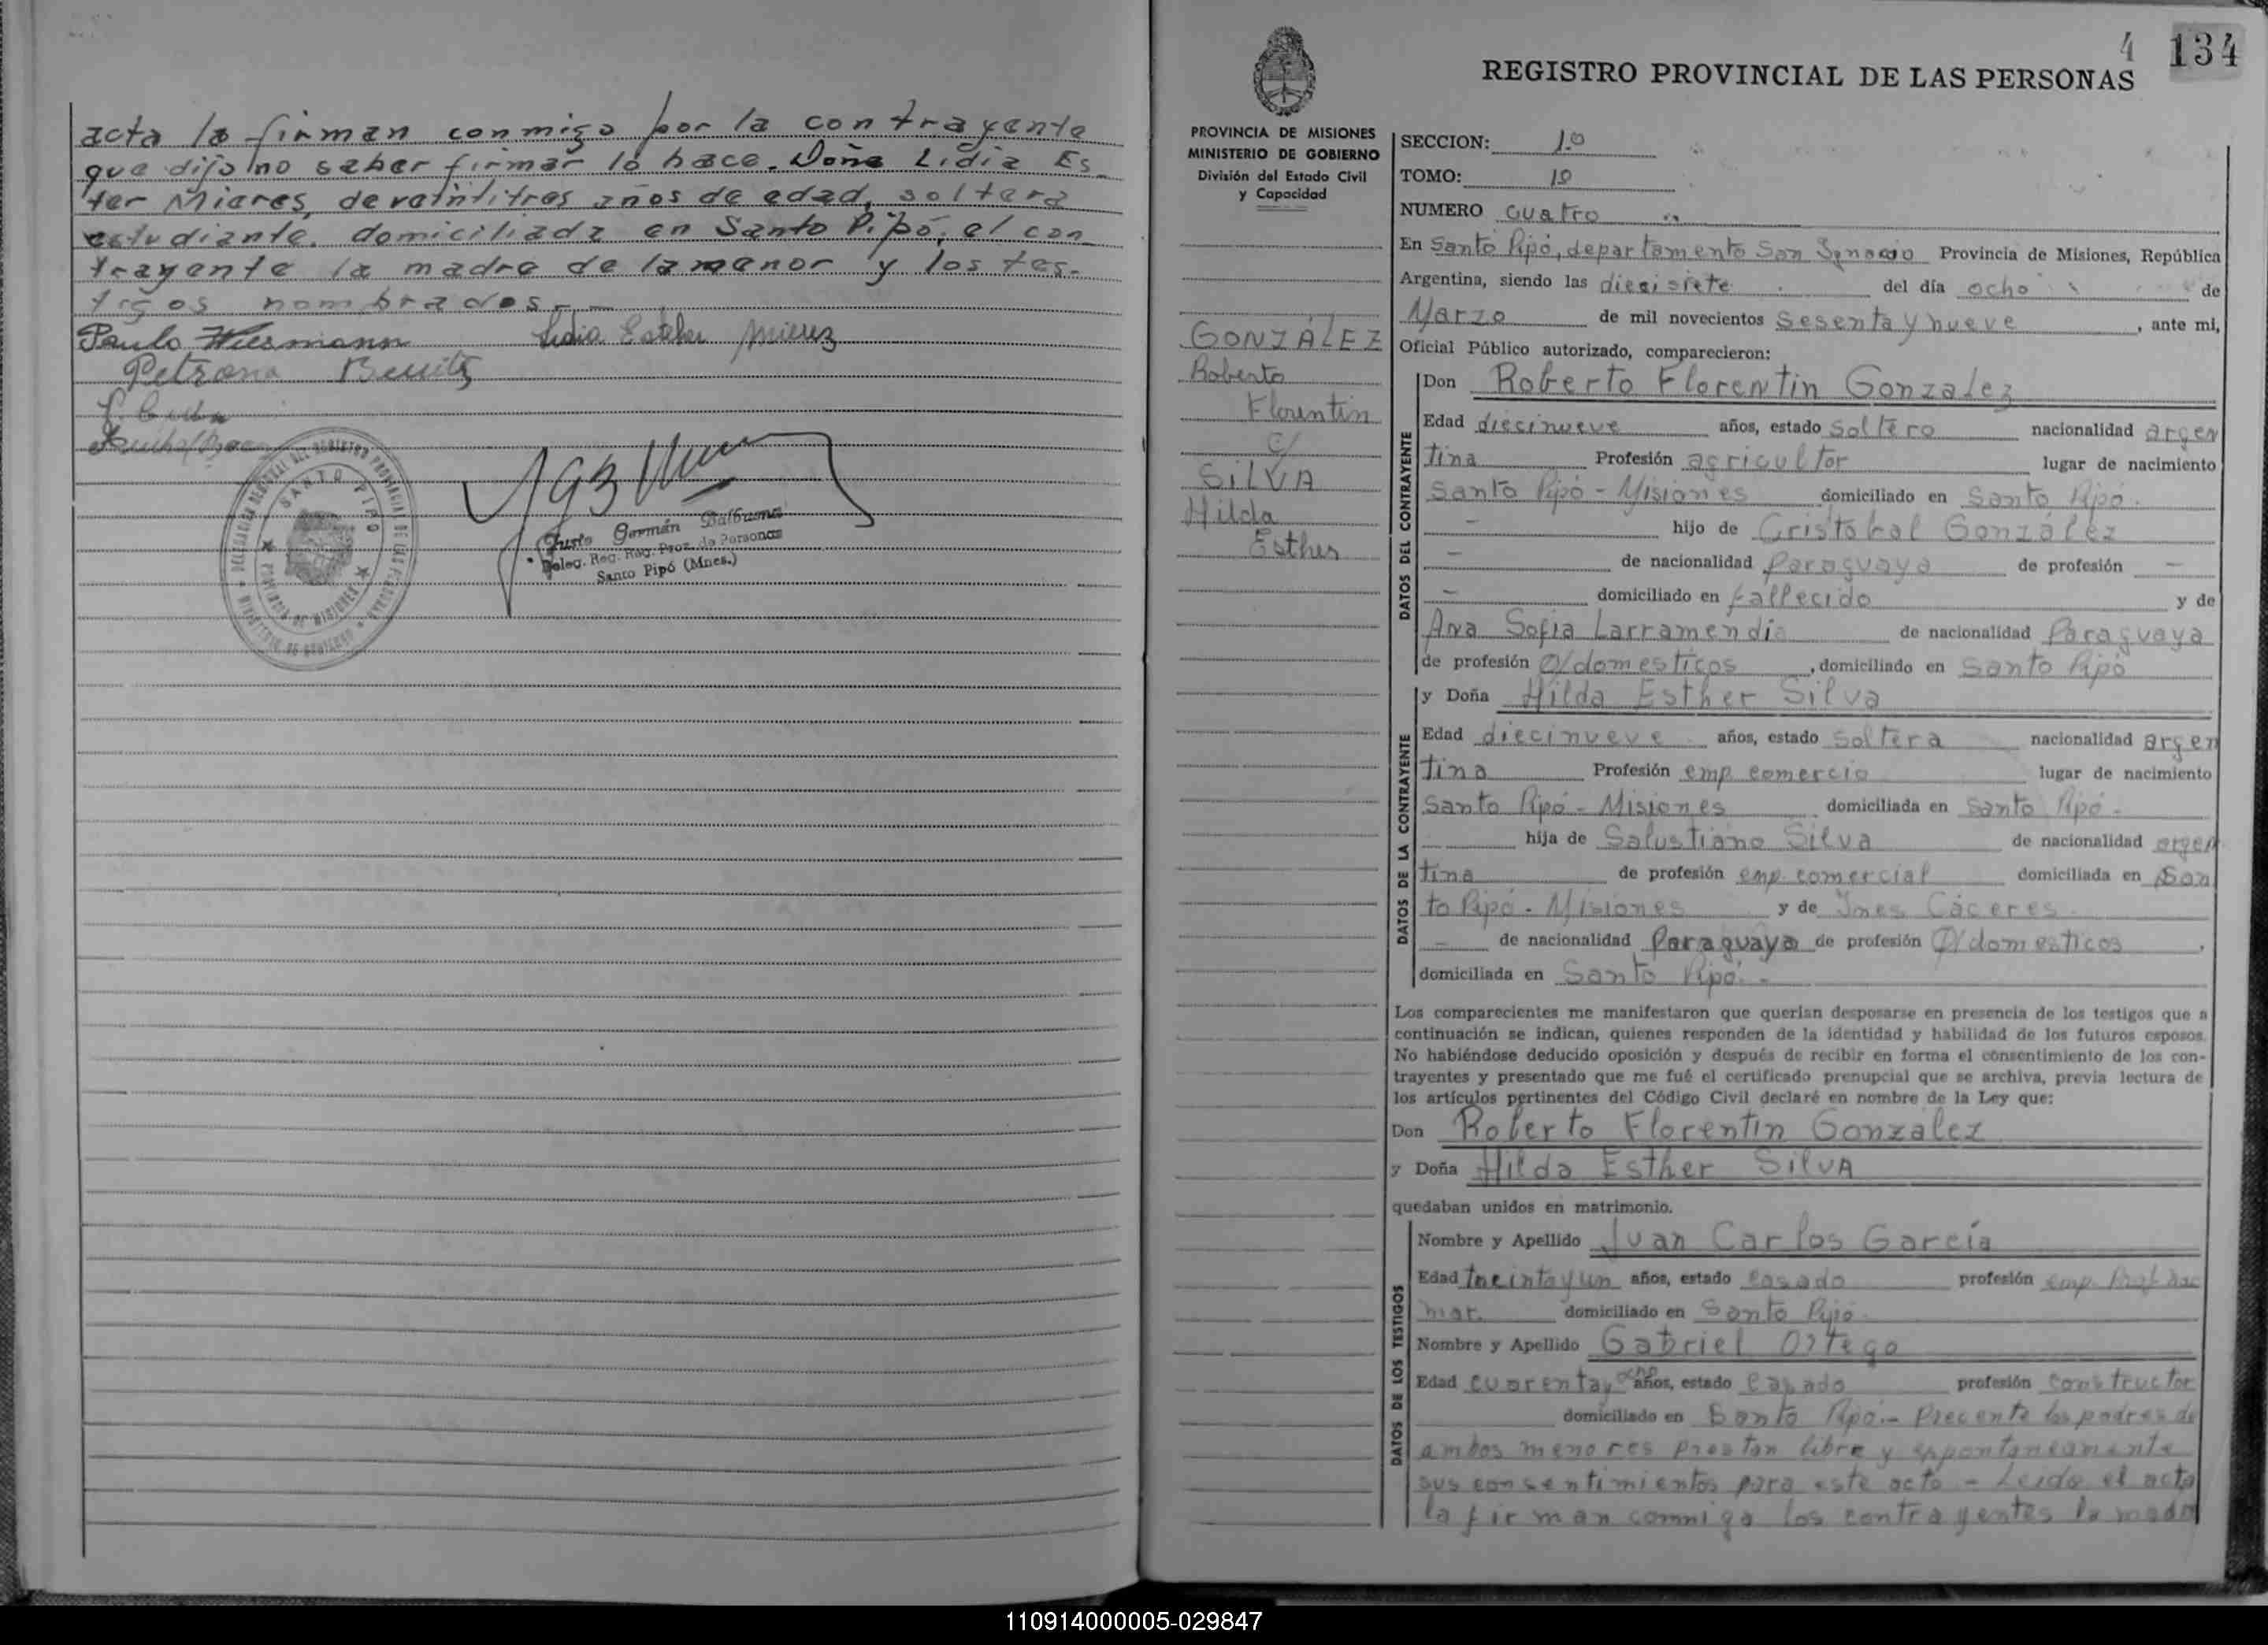 acta la firman conmigo por la contrayente
que dijo no saber firmar lo hace. Doña Lidia Es-
ter Mieres, de veintitres años de edad, soltera
estudiante, domiciliada en Santo Pipó, el con
trayente la madre de la menor y los tes-
tigos nombrados.-
Paulo Lidia Esther Mierez
Petrona Benitez
DELEGACION REGIONAL DEL REGISTRO PROVINCIAL DE LAS PERSONAS
SANTO PIPO
PROVINCIA DE MISIONES
MINISTERIO DE GOBIERNO
Justo Germán Balbuena
Deleg. Reg. Reg. Prov. de Personas
Santo Pipó (Mnes.)
4 134
REGISTRO PROVINCIAL DE LAS PERSONAS
PROVINCIA DE MISIONES
MINISTERIO DE GOBIERNO
División del Estado Civil
y Capacidad
GONZÁLEZ
Roberto
Florentin
c/
SILVA
Hilda
Esther
SECCION: 1º
TOMO: 1º
NUMERO cuatro
En Santo Pipó, departamento San Ignacio Provincia de Misiones, República
Argentina, siendo las diecisiete del día ocho de
Marzo de mil novecientos sesenta y nueve, ante mi,
Oficial Público autorizado, comparecieron:
DATOS DEL CONTRAYENTE
Don Roberto Florentin Gonzalez
Edad diecinueve años, estado soltero nacionalidad argen
tina Profesión agricultor lugar de nacimiento
Santo Pipó - Misiones domiciliado en Santo Pipó.
- hijo de Cristobal González
- de nacionalidad Paraguaya de profesión -
- domiciliado en fallecido y de
Ana Sofia Larramendia de nacionalidad Paraguaya
de profesión Q/domesticos, domiciliado en Santo Pipó
DATOS DE LA CONTRAYENTE
y Doña Hilda Esther Silva
Edad diecinueve años, estado soltera nacionalidad argen
tina Profesión emp comercio lugar de nacimiento
Santo Pipó - Misiones domiciliada en Santo Pipó -
hija de Salustiano Silva de nacionalidad argen
tina de profesión emp. comercial domiciliada en San
to Pipó - Misiones y de Ines Cáceres
- de nacionalidad Paraguaya de profesión Q/domesticos,
domiciliada en Santo Pipó. -
Los comparecientes me manifestaron que querían desposarse en presencia de los testigos que a
continuación se indican, quienes responden de la identidad y habilidad de los futuros esposos.
No habiéndose deducido oposición y después de recibir en forma el consentimiento de los con-
trayentes y presentado que me fué el certificado prenupcial que se archiva, previa lectura de
los artículos pertinentes del Código Civil declaré en nombre de la Ley que:
Don Roberto Florentin Gonzalez
y Doña Hilda Esther SilvA
quedaban unidos en matrimonio.
DATOS DE LOS TESTIGOS
Nombre y Apellido Juan Carlos García
Edad treinta y un años, estado casado profesión emp.
domiciliado en Santo Pipó.
Nombre y Apellido Gabriel Ortega
Edad cuarenta y años, estado casado profesión constructor
domiciliado en Santo Pipó.- Precente los padres de
ambos menores prestan libre y espontaneamente
sus consentimientos para este acto - Leida el acta
la firman conmigo los contrayentes la madre
110914000005-029847